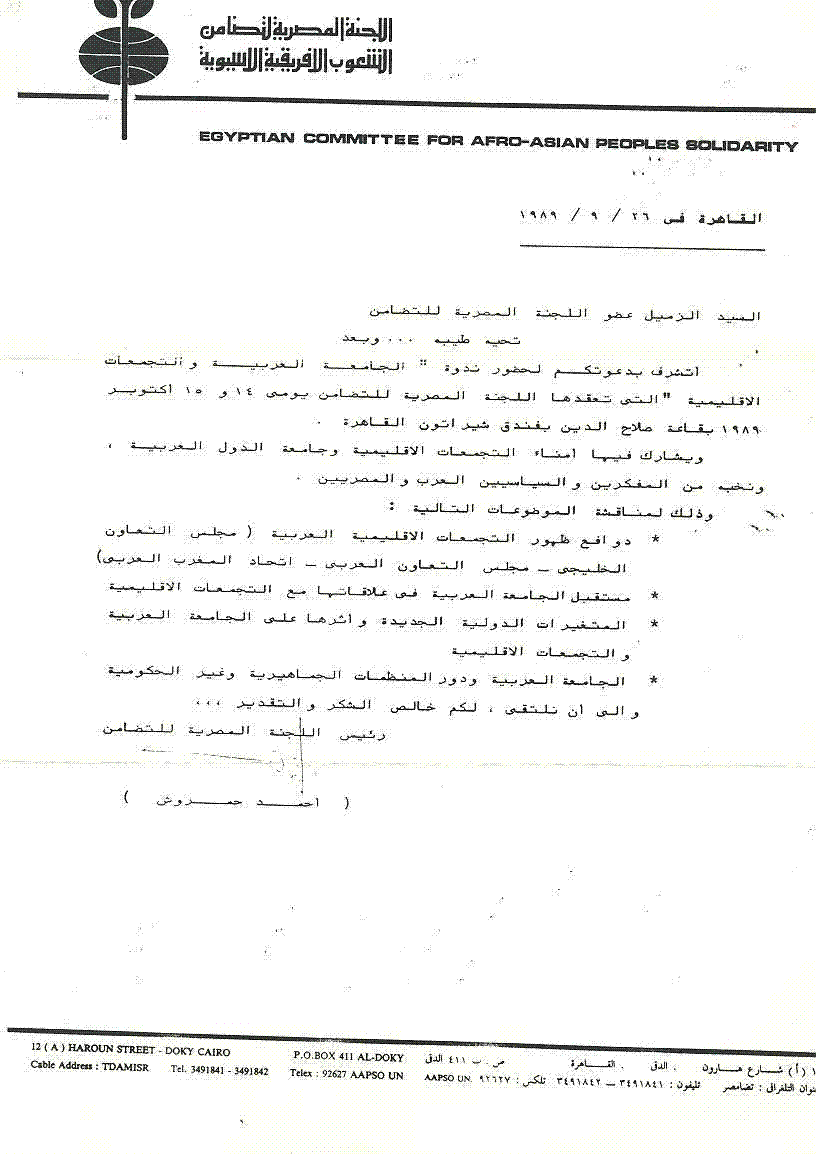 اللجنة المصرية لتضامن
الشعوب الافريقية الاسيوية
EGYPTIAN COMMITTEE FOR AFRO-ASIAN PEOPLES SOLIDARITY
القاهرة فى ٢٦ / ٩ / ١٩٨٩
السيد الزميل عضو اللجنة المصرية للتضامن
تحيه طيبه ... وبعد
أتشرف بدعوتكم لحضور ندوة " الجامعة العربية والتجمعات
الاقليمية " التى تعقدها اللجنة المصرية للتضامن يومى ١٤ و ١٥ أكتوبر
١٩٨٩ بقاعة صلاح الدين بفندق شيراتون القاهرة .
ويشارك فيها أمناء التجمعات الاقليمية وجامعة الدول العربية ،
ونخبه من المفكرين والسياسيين العرب والمصريين .
وذلك لمناقشة الموضوعات التالية :
* دوافع ظهور التجمعات الاقليمية العربية ( مجلس التعاون
الخليجى – مجلس التعاون العربى – اتحاد المغرب العربى)
* مستقبل الجامعة العربية فى علاقاتها مع التجمعات الاقليمية
* المتغيرات الدولية الجديدة وأثرها على الجامعة العربية
والتجمعات الاقليمية
* الجامعة العربية ودور المنظمات الجماهيرية وغير الحكومية
والى أن نلتقى ، لكم خالص الشكر والتقدير ،،،
رئيس اللجنة المصرية للتضامن
( أحمد حمروش )
12 ( A ) HAROUN STREET - DOKY CAIRO P.O.BOX 411 AL-DOKY ص . ب ٤١١ الدقى
Cable Address : TDAMISR Tel. 3491841 - 3491842 Telex : 92627 AAPSO UN
(أ) شارع هارون ، الدقى ، القاهرة
التلغرافى : تضامصر تليفون : ٣٤٩١٨٤١ – ٣٤٩١٨٤٢ تلكس : ٩٢٦٢٧ AAPSO UN.